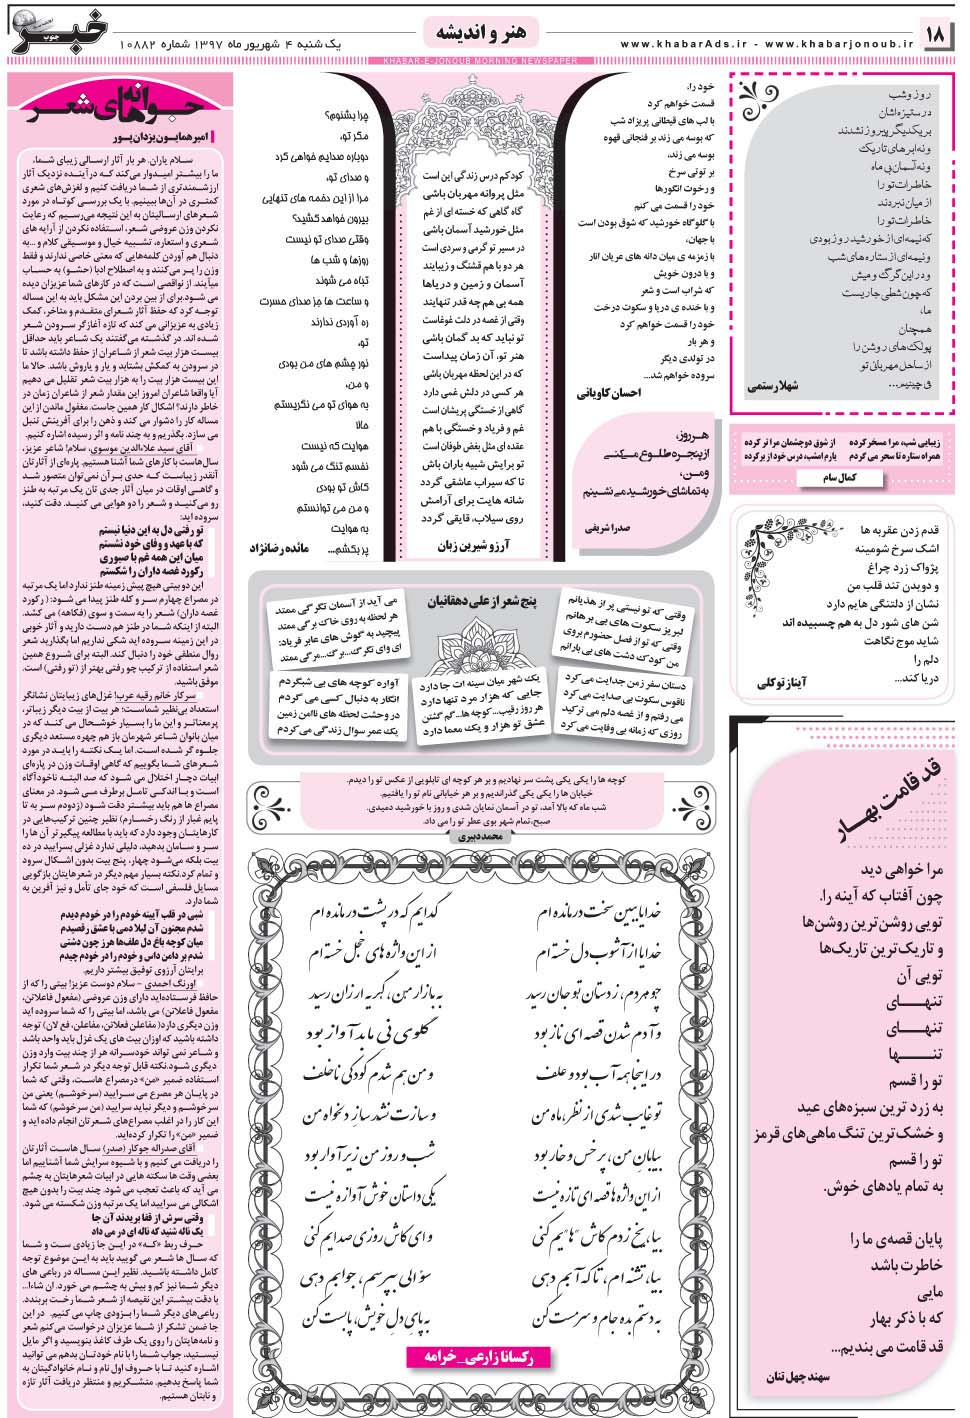 ۱۸
www.khabarAds.ir - www.khabarjonoub.ir
هنر و اندیشه
یک شنبه ۴ شهریور ماه ۱۳۹۷ شماره ۱۰۸۸۲
خبر
جنوب
KHABAR-E-JONOUB MORNING NEWSPAPER
روز و شب
در ستیزه اشان
بر یکدیگر پیروز نشدند
و نه ابرهای تاریک
و نه آسمان بی ماه
خاطرات تو را
از میان نبردند
خاطرات تو را
که نیمه ای از خورشید روز بودی
و نیمه ای از ستاره های شب
و در این گرگ و میش
که چون شطی جاریست
ما،
همچنان
پولک های روشن را
از ساحل مهربانی تو
می چینیم...
شهلا رستمی
زیبایی شب، مرا مسخر کرده
از شوق دو چشمان مرا تر کرده
همراه ستاره تا سحر می گردم
یارم امشب، درس خود از بر کرده
کمال سام
قدم زدن عقربه ها
اشک سرخ شومینه
پژواک زرد چراغ
و دویدن تند قلب من
نشان از دلتنگی هایم دارد
شن های شور دل به هم چسبیده اند
شاید موج نگاهت
دلم را
دریا کند...
آیناز توکلی
قد قامت بهار
مرا خواهی دید
چون آفتاب که آینه را.
تویی روشن‌ترین روشن‌ها
و تاریک‌ترین تاریک‌ها
تویی آن
تنهـــای
تنهـــای
تنـــــها
تو را قسم
به زرد ترین سبزه‌های عید
و خشک‌ترین تنگ ماهی‌های قرمز
تو را قسم
به تمام یادهای خوش.
پایان قصه‌ی ما را
خاطرت باشد
مایی
که با ذکر بهار
قد قامت می بندیم...
سهند چهل تنان
خود را،
قسمت خواهم کرد
با لب های قیطانی پریزاد شب
که بوسه می زند بر فنجانی قهوه
بوسه می زند،
بر توتی سرخ
و رخوت انگورها
خود را قسمت می کنم
با گلوگاه خورشید که شوق بودن است
با جهان،
با زمزمه ی میان دانه های عریان انار
و با درون خویش
که شراب است و شعر
و با خنده ی دریا و سکوت درخت
خود را قسمت خواهم کرد
و هر بار
در تولدی دیگر
سروده خواهم شد...
احسان کاویانی
هـــر روز،
از پنجره طلوع می‌کنی
و من،
به تماشای خورشید می نشینم
صدرا شریفی
کودکم درس زندگی این است
مثل پروانه مهربان باشی
گاه گاهی که خسته ای از غم
مثل خورشید آسمان باشی
در مسیر تو گرمی و سردی است
هر دو با هم قشنگ و زیبایند
آسمان و زمین و دریاها
همه بی هم چه قدر تنهایند
وقتی از غصه در دلت غوغاست
تو نباید که بد گمان باشی
هنر تو، آن زمان پیداست
که در این لحظه مهربان باشی
هر کسی در دلش غمی دارد
گاهی از خستگی پریشان است
غم و فریاد و خستگی با هم
عقده ای مثل بغض طوفان است
تو برایش شبیه باران باش
تا که سیراب عاشقی گردد
شانه هایت برای آرامش
روی سیلاب، قایقی گردد
آرزو شیرین زبان
چرا بشنوم؟
مگر تو،
دوباره صدایم خواهی کرد
و صدای تو،
مرا از این دخمه های تنهایی
بیرون خواهد کشید؟
وقتی صدای تو نیست
روزها و شب ها
تباه می شوند
و ساعت ها جز صدای حسرت
ره آوردی ندارند
تو،
نور چشم های من بودی
و من،
به هوای تو می نگریستم
حالا
هوایت که نیست
نفسم تنگ می شود
کاش تو بودی
و من می توانستم
به هوایت
پر بکشم...
مائده رضانژاد
پنج شعر از علی دهقانیان
وقتی که تو نیستی پر از هذیانم
لبریز سکوت های بی برهانم
وقتی که تو از فصل حضورم بروی
من کودک دشت های بی بارانم
می آید از آسمان تگرگی ممتد
هر لحظه به روی خاک برگی ممتد
پیچید به گوش های عابر فریاد:
ای وای تگرگ...برگ...مرگی ممتد
دستان سفر زمن جدایت می کرد
ناقوس سکوت بی صدایت می کرد
می رفتم و از غصه دلم می ترکید
روزی که زمانه بی وفایت می کرد
یک شهر میان سینه ات جا دارد
جایی که هزار مرد تنها دارد
هر روز رقیب...کوچه ها...گم گشتن
عشق تو هزار و یک معما دارد
آواره کوچه های بی شبگردم
انگار به دنبال کسی می گردم
در وحشت لحظه های ناامن زمین
یک عمر سوال زندگی می کردم
کوچه ها را یکی یکی پشت سر نهادیم و بر هر کوچه ای تابلویی از عکس تو را دیدم.
خیابان ها را یکی یکی گذراندیم و بر هر خیابانی نام تو را یافتیم.
شب ماه که بالا آمد، تو در آسمان نمایان شدی و روز با خورشید دمیدی.
صبح، تمام شهر بوی عطر تو را می داد.
محمد دبیری
خدایا ببین سخت درمانده ام
گدایم که در پشت در مانده ام
خدایا از آشوب دل خسته ام
از این واژه های خجل خسته ام
چو مردم، ز دستان تو جان رسید
به بازار من، گریه ارزان رسید
و آدم شدن قصه ای ناز بود
گلوی نی ما بد آواز بود
در اینجا همه آب بود و علف
و من هم شدم کودکی ناخلف
تو غایب شدی از نظر، ماه من
و سازت نشد ساز دلخواه من
بیابان من، پر خس و خار بود
شب و روز من زیر آوار بود
از این واژه ها قصه ای تازه نیست
یکی داستان خوش آوازه نیست
بیا، یخ زدم کاش "ها"یم کنی
و ای کاش روزی صدایم کنی
بیا، تشنه ام، تا که آبم دهی
سؤالی بپرسم، جوابم دهی
به دستم بده جام و سرمست کن
به پای دل خویش، پابست کن
رکسانا زارعی_خرامه
جوانه های شعر
امیر همایون یزدان پور
ســلام یاران. هر بار آثار ارسالی زیبای شما،
ما را بیشتر امیدوار می‌کند کــه در آینده نزدیک آثار
ارزشمندتری از شما دریافت کنیم و لغزش‌های شعری
کمتری در آن‌ها ببینیم. با یک بررسی کوتاه در مورد
شعرهای ارسالیتان به این نتیجه می‌رسیم که رعایت
نکردن وزن عروضی شعر، استفاده نکردن از آرایه های
شعری و استعاره، تشــبیه خیال و موسیقی کلام و ...به
دنبال هم آوردن کلمه‌هایی که معنی خاصی ندارند و فقط
وزن را پــر می‌کنند و به اصطلاح ادبا (حشــو) به حساب
می‌آیند. از نواقصی است که در کارهای شما عزیزان دیده
می شود.برای از بین بردن این مشکل باید به این مساله
توجه کرد که حفظ آثار شعرای متقدم و متاخر، کمک
زیادی به عزیزانی می کند که تازه آغازگر سرودن شعر
شده اند. در گذشــته می‌گفتند یک شاعر باید حداقل
بیست هزار بیت شعر از شاعران از حفظ داشته باشد تا
در سرودن به کمکش بشتابد و یار و یاروش باشد. حالا ما
این بیست هزار بیت را به هزار بیت شعر تقلیل می دهیم
آیا واقعا شاعران امروز این مقدار شعر از شاعران زمان در
خاطر دارند؟ اشکال کار همین جاست. مغفول ماندن از این
مساله کار را دشوار می کند و ذهن را برای آفرینش تنبل
می سازد. بگذریم و به چند نامه و اثر رسیده اشاره کنیم.
آقای سید علاءالدین موسوی، سلام! شاعر عزیز،
سال‌هاست با کارهای شما آشنا هستیم. پاره‌ای از آثارتان
آنقدر زیباســت کــه حدی بــرآن نمی توان متصور شد
و گاهــی اوقات در میان آثار جدی تان یک مرتبه به طنز
رو می‌کنیــد و شــعر را دو هوایی می کنید. دقت کنید،
سروده اید:
تو رفتی دل به این دنیا نبستم
که با عهد و وفای خود نشستم
میان این همه غم با صبوری
رکورد غصه داران را شکستم
این دوبیتی هیچ پیش زمینه طنز ندارد اما یک مرتبه
در مصراع چهارم ســر و کله طنز پیدا می‌شود: (رکورد
غصه داران) شــعر را به ســمت و سوی (فکاهه) می کشد.
البته از اینکه شــما در طنز هم دست دارید و آثار خوبی
در این زمینه سروده اید شکی نداریم اما بگذارید شعر
روال منطقی خود را دنبال کند. البته برای شــروع همین
شعر استفاده از ترکیب چو رفتی بهتر از (تو رفتی) است.
موفق باشید.
سرکار خانم رقیه عرب! غزل‌های زیبایتان نشانگر
استعداد بی‌نظیر شماست؛ هر بیت از بیت دیگر زیباتر،
پرمعناتــر و این ما را بســیار خوشــحال می کند که در
میان بانوان شــاعر شهرمان باز هم چهره مستعد دیگری
جلوه گر شده اســت. اما یک نکتــه را باید در مورد
شعرهای شما بگوییم که گاهی اوقات وزن در پاره‌ای
ابیات دچار اختلال می شــود که صد البتــه ناخودآگاه
اســت و بــا اندکــی تامــل برطرف مــی شــود. در معنای
مصراع ها هم باید بیشتر دقت شود (زدودم سر به تا
پایم غبار از رنگ رخســارم) نظیر چنین ترکیب‌هایی در
کارهایتان وجود دارد که باید با مطالعه پیگیرتر آن ها را
ســر و سامان بدهید. دلیلی ندارد غزلی بسرایید در ده
بیت بلکه می‌شود چهار، پنج بیت بدون اشکال سرود
و تمام کرد.نکته بسیار مهم دیگر در شعرهایتان بازگویی
مسایل فلسفی است که خود جای تأمل و نیز آفرین به
شما دارد.
شبی در قلب آیینه خودم را در خودم دیدم
شدم مجنون آن لیلا دمی با عشق رقصیدم
میان کوچه باغ دل علف‌ها هرز چون دشتی
شدم بر دامن داس و خودم را در خودم چیدم
برایتان آرزوی توفیق بیشتر داریم.
اورنگ احمدی - سلام دوست عزیز! بیتی را که از
حافظ فرستاده‌اید دارای وزن عروضی (مفعول فاعلاتن،
مفعول فاعلاتن) می باشد، اما بیتی را که شما سروده اید
وزن دیگری دارد(مفاعلن فعلاتن، مفاعلن، فع لان) توجه
داشته باشید که اوزان بیت های یک غزل باید واحد باشد
و شاعر نمی تواند خودسرانه هر از چند بیت وارد وزن
دیگری شود.نکته قابل توجه دیگر در شعر شما تکرار
استفاده ضمیر «من» درمصراع هاست، وقتی که شما
در پایــان هر مصرع می ســرایید (سرخوشم) یعنی من
سرخوشــم و دیگر نباید سرایید (من سرخوشم) که شما
این کار را در اغلب مصرع‌های شعرتان انجام داده اید و
ضمیر «من» را تکرار کرده‌اید.
آقای صدراله جوکار (صدر) سال هاست آثارتان
را دریافت می کنیم و با شــیوه سرایش شما آشناییم اما
بعضی وقت ها سکته هایی در ابیات شعرهایتان به چشم
می آید که باعث تعجب می شود. چند بیت را بدون هیچ
اشکالی می سرایید اما یک مرتبه وزن شکسته می شود.
وقتی سرش از قفا بریدند آن جا
یک ناله شنید که ناله ای در می داد
حــرف ربط «کــه» در این جا زیادی ســت و شــما
که سال ها شعر می گویید باید به این موضوع توجه
کامل داشته باشــید. نظیر این مساله در رباعی های
دیگر شما نیز کم و بیش به چشــم می خورد. ان شاءا...
با دقت بیشتر این نقیصه از شعر شما رخت بربندد.
رباعی‌های دیگر شما را بزودی چاپ می‌کنیم. در این
جا ضمن تشکر از شما عزیزان درخواست می‌کنم شعر
و نامه‌هایتان را روی یک طرف کاغذ بنویسید و اگر مایل
نیستید، جواب شما را با نام بدهم می توانید
اشاره کنید تــا با حروف اول نام و نام خانوادگیتان به
شما پاسخ بدهیم. متشــکریم و منتظر دریافت آثار تازه
و نابتان هستیم.